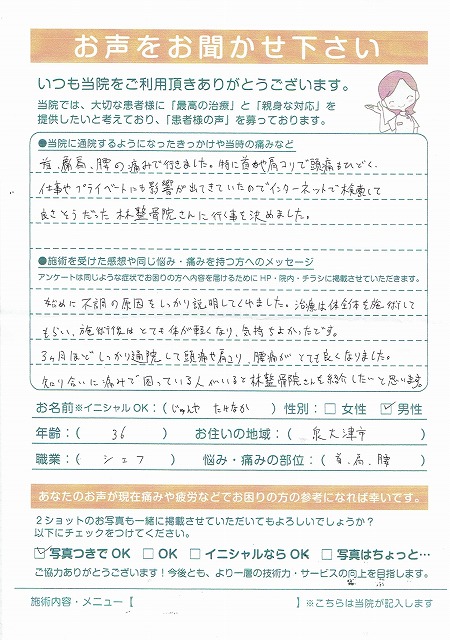 お声をお聞かせ下さい
いつも当院をご利用頂きありがとうございます。
当院では、大切な患者様に「最高の治療」と「親身な対応」を
提供したいと考えており、「患者様の声」を募っております。
●当院に通院するようになったきっかけや当時の痛みなど
首、肩、腰の痛みで行きました。特に首や肩コリで頭痛もひどく、
仕事やプライベートにも影響が出てきていたのでインターネットで検索して
良さそうだった林整骨院さんに行く事を決めました。
●施術を受けた感想や同じ悩み・痛みを持つ方へのメッセージ
アンケートは同じような症状でお困りの方へ内容を届けるためにHP・院内・チラシに掲載させていただきます。
始めに不調の原因をしっかり説明してくれました。治療は体全体を施術して
もらい、施術後はとても体が軽くなり、気持ちよかったです。
3ヶ月ほどしっかり通院して頭痛や肩コリ、腰痛がとても良くなりました。
知り合いに痛みで困っている人がいると林整骨院さんを紹介したいと思います。
お名前※イニシャルOK：（じゅんや たなか）性別：□女性 ☑男性
年齢：（36）お住いの地域：（泉大津市）
職業：（シェフ）悩み・痛みの部位：（首、肩、腰）
あなたのお声が現在痛みや疲労などでお困りの方の参考になれば幸いです。
2ショットのお写真も一緒に掲載させていただいてもよろしいでしょうか？
以下にチェックをつけてください。
☑写真つきでOK □OK □イニシャルならOK □写真はちょっと…
ご協力ありがとうございます！今後とも、より一層の技術力・サービスの向上を目指します。
施術内容・メニュー【 】※こちらは当院が記入します